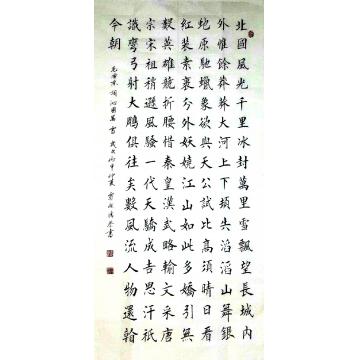 北國風光千里冰封萬里雪飄望長城內
外惟餘莽莽大河上下頓失滔滔山舞銀
蛇原馳蠟象欲與天公試比高須晴日看
紅裝素裹分外妖嬈江山如此多嬌引無
數英雄競折腰惜秦皇漢武略輸文采唐
宗宋祖稍遜風騷一代天驕成吉思汗祇
識彎弓射大鵰俱往矣數風流人物還
今朝
毛澤東詞沁園春雪 歲次丙申仲夏 書